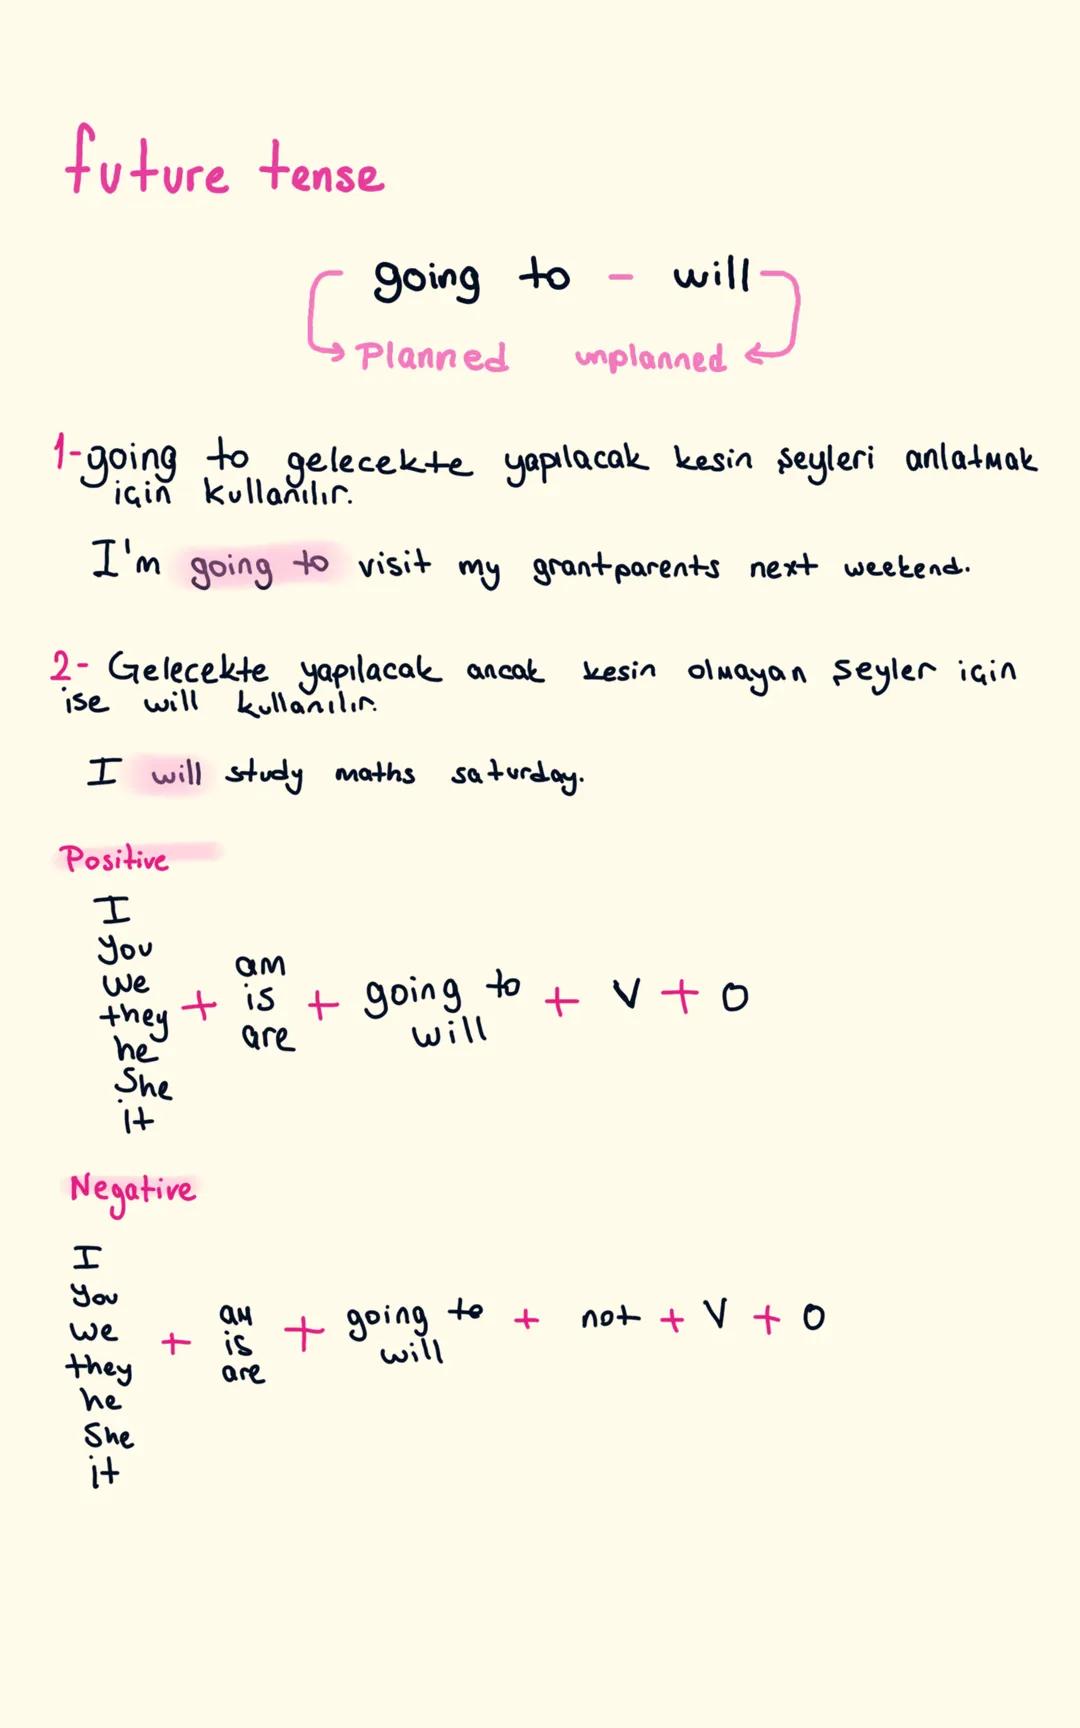 future tense
going to - will
Planned unplanned
1-going to gelecekte yapılacak kesin şeyleri anlatmak
için kullanılır.
I'm going to visit my grantparents next weekend.
2- Gelecekte yapılacak ancak kesin olmayan şeyler için
ise will kullanılır.
I will study maths saturday.
Positive
I
you
we
they
he
She
it
+
am
is
are
+
going to
will
+ V + O
Negative
I
you
we
they
he
She
it
+
am
is
are
+
going to
will
+ not + V + O